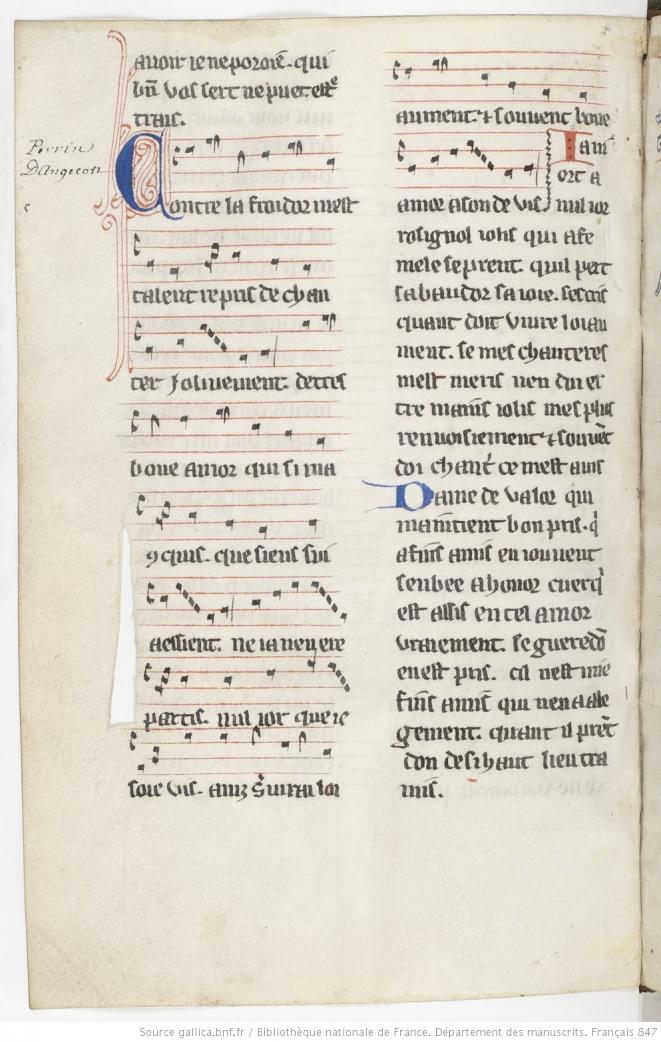 Perrin
D'Angecort
avoir ie ne poroie. qui
bn̄ vos sert ne puet estre
trais.
Contre la froidor mest
talent repris de chan
ter joliuement. de tres
bone amor qui si ma
9quis. que siens sui
aessient. ne ia nen ere
partis. nul ior que ie
soie vis. ainz
aument. & souuent bone
amor a son de vis. nul ior
rosignol iolis qui a fe
mele se prent. quil pert
sa baudor sa ioie. ses cris
quant doit viure loiau
ment. se mes chanteres
mest meris nen doi es
tre mains iolis mes plus
renuoisiement & souuēt
doi chant' ce mest auis
Dame de valor qui
maintient bon pris. q̄
a fins amis en iouuent
senbee a honor cuer
est assis en tel amor
vraiement. se gueredō
en est pris. cil nest mie
fins amis qui nen a ale
gement. quant il prēt
don de si haut lieu tra
mis.
Source gallica.bnf.fr / Bibliothèque nationale de France. Département des manuscrits. Français 847